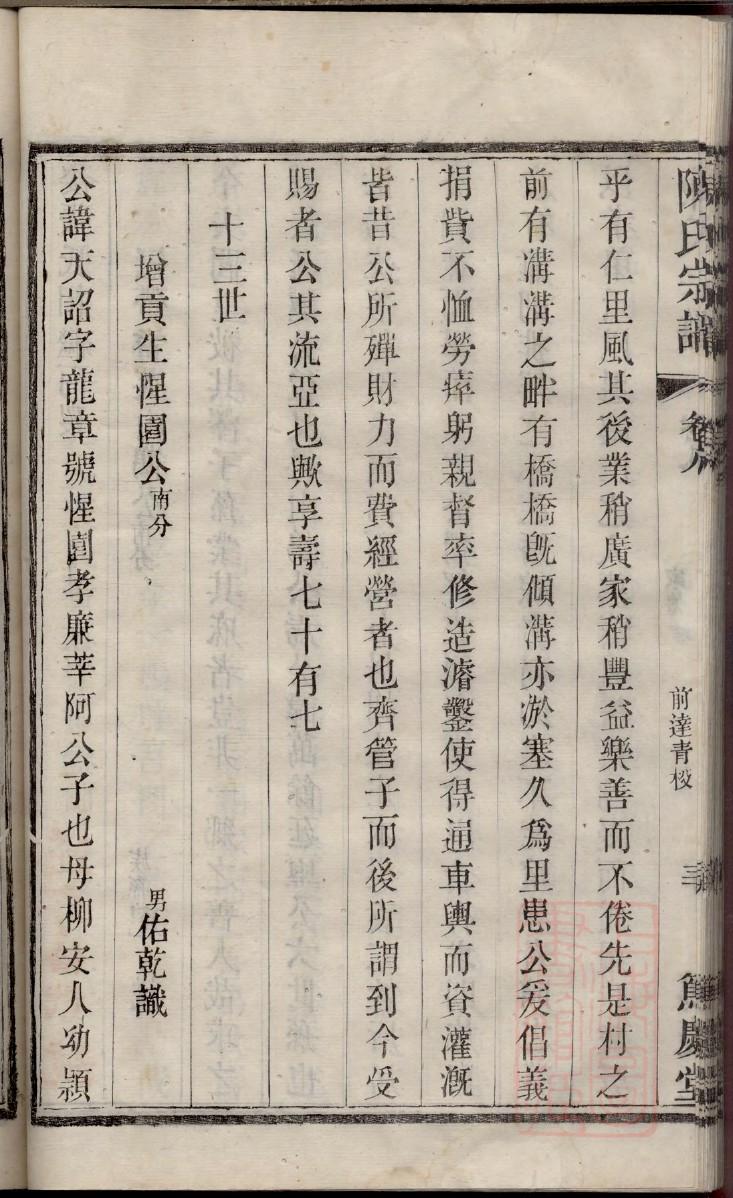 陳氏宗譜
前達青校
篤慶堂
乎有仁里風其後業稍廣家稍豐益樂善而不倦先是村之
前有溝溝之畔有橋橋旣傾溝亦淤塞久爲里患公爰倡義
捐貲不恤勞瘁躬親督率修造濬鑿使得通車輿而資灌漑
皆昔公所殫財力而費經營者也齊管子而後所謂到今受
賜者公其流亞也歟享壽七十有七
十三世
增貢生惺園公南分
男佑乾識
公諱天詔字龍章號惺園孝廉莘阿公子也母柳安人幼穎